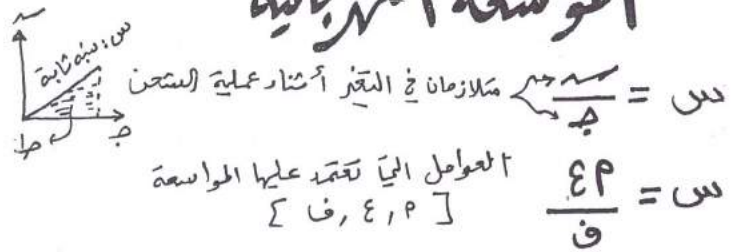 المواسعة الكهربائية
س = سـ / جـ متلازمان في التغير أثناء عملية الشحن
سـ
س: نسبة ثابتة
جـ
ط
س = ٤ م / ف العوامل التي تعتمد عليها المواسعة
[ م , ٤ , ف ]